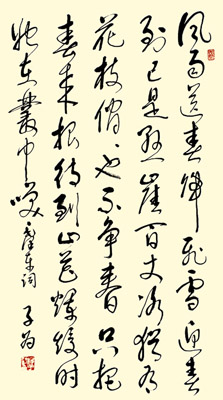 風雨送春歸飛雪迎春
到已是懸崖百丈冰猶有
花枝俏々也不爭春只把
春來報待到山花爛熳時
她在叢中笑 毛澤東詞 子